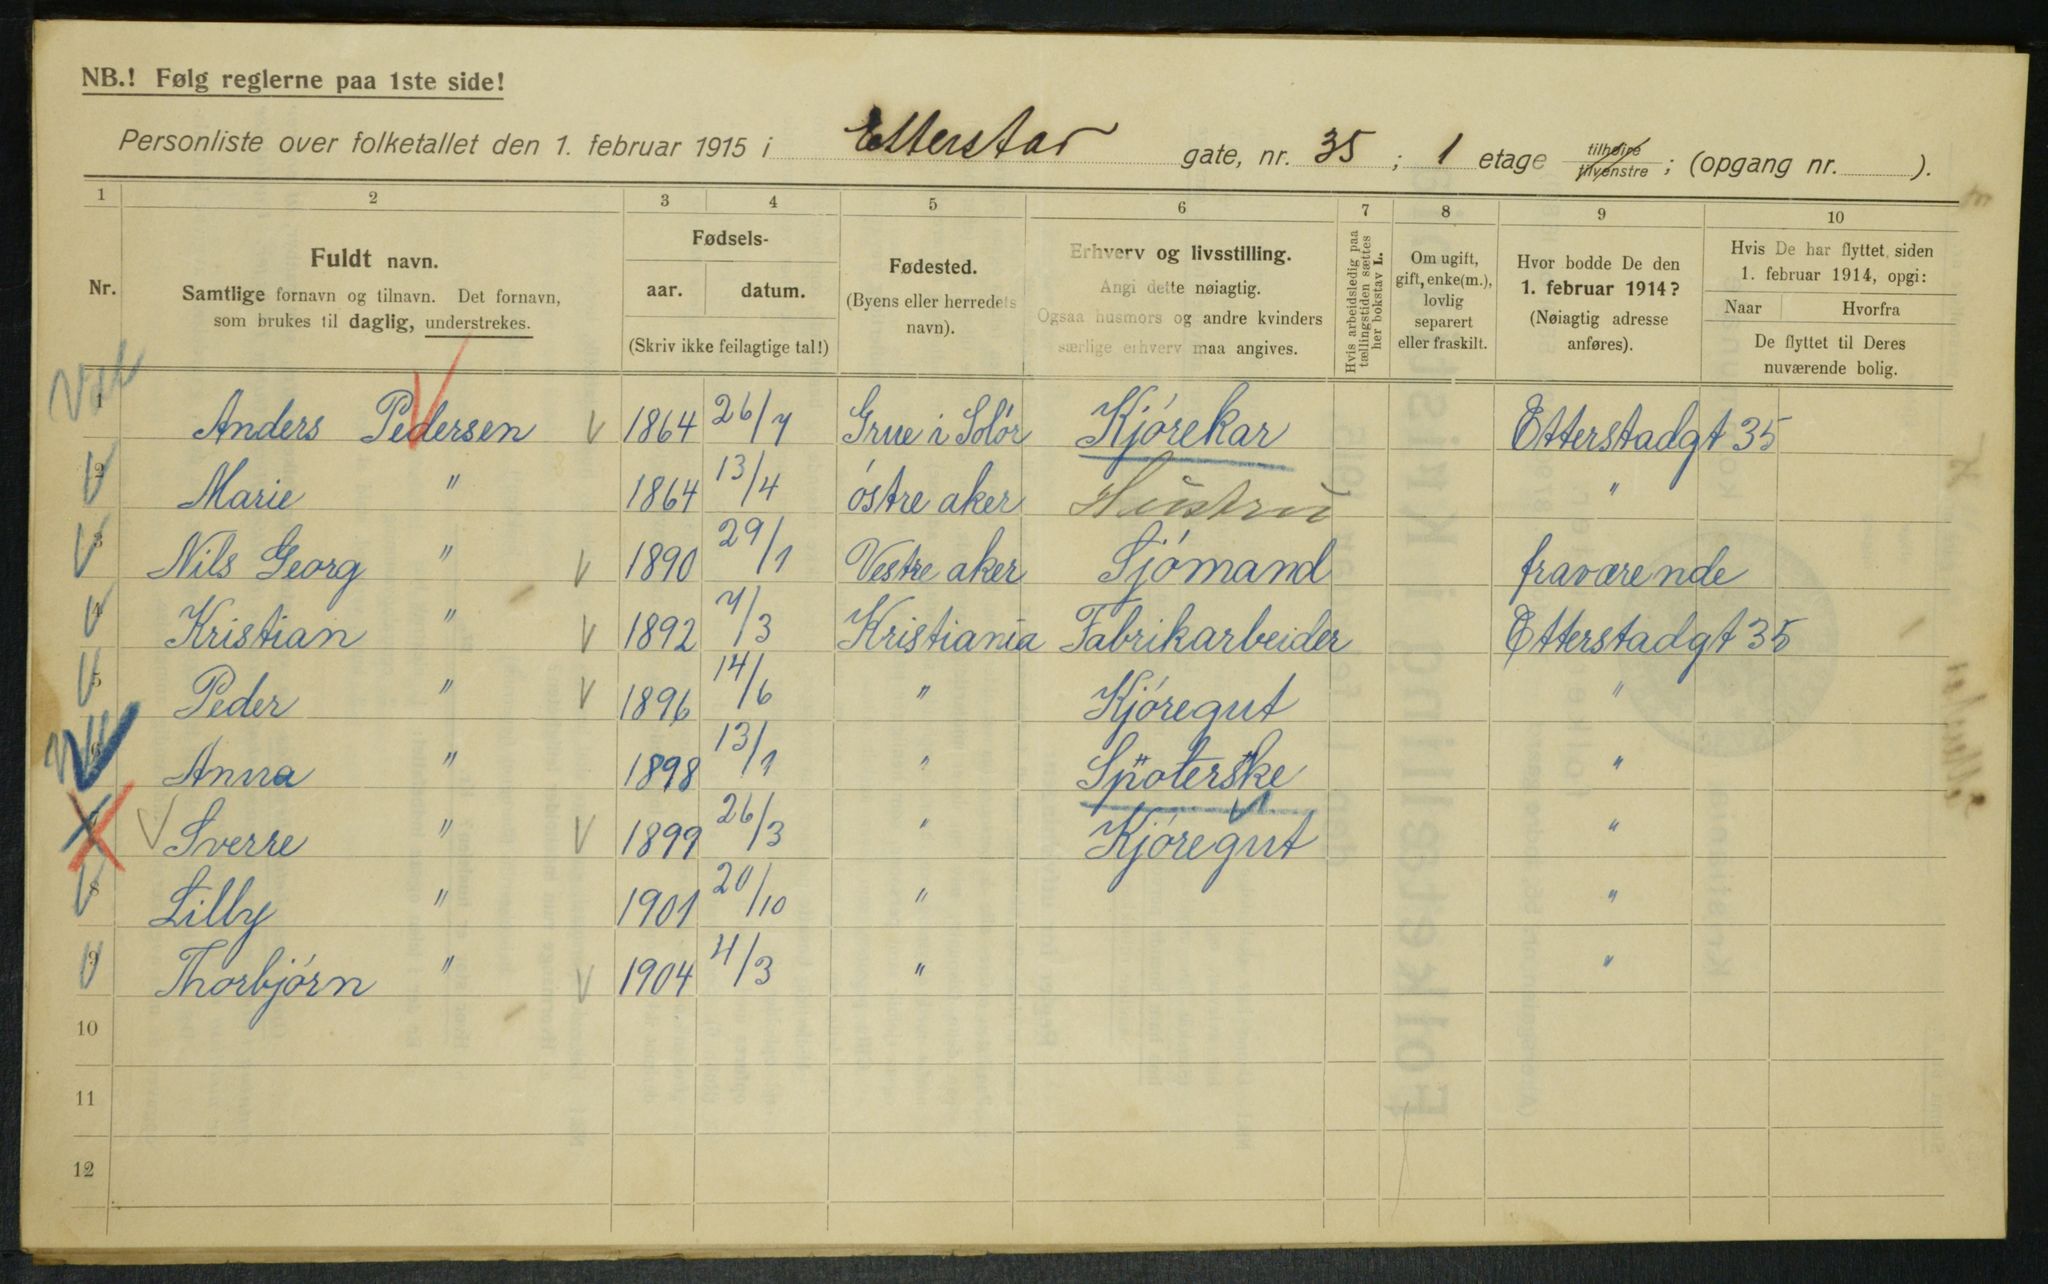 NB.! Følg reglerne paa 1ste side!
Personliste over folketallet den 1. februar 1915 i Etterstad gate, nr. 35 ; 1 etage tilhøire tilvenstre ; (opgang nr. ).
1 2 3 4 5 6 7 8 9 10
Nr.
Fuldt navn.
Samtlige fornavn og tilnavn. Det fornavn,
som brukes til daglig, understrekes.
Fødsels-
aar. datum.
(Skriv ikke feilagtige tal!)
Fødested.
(Byens eller herredets
navn).
Erhverv og livsstilling.
Angi dette nøiagtig.
Ogsaa husmors og andre kvinders
særlige erhverv maa angives.
Hvis arbeidsledig paa
tællingstiden sættes
her bokstav L.
Om ugift,
gift, enke(m.),
lovlig
separert
eller fraskilt.
Hvor bodde De den
1. februar 1914?
(Nøiagtig adresse
anføres).
Hvis De har flyttet siden
1. februar 1914, opgi:
Naar Hvorfra
De flyttet til Deres
nuværende bolig.
1 Anders Pedersen 1864 26/7 Grue i Solör Kjörekar Etterstadgt 35
2 Marie " 1864 13/4 östre aker Hustru "
3 Nils Georg " 1890 29/1 Vestre aker Sjömand fraværende
4 Kristian " 1892 7/3 Kristiania Fabrikarbeider Etterstadgt 35
5 Peder " 1896 14/6 " Kjöregut "
6 Anna " 1898 13/1 " "
7 Sverre " 1899 26/3 " Kjöregut "
8 Lilly " 1901 20/10 " "
9 Thorbjörn " 1904 4/3 " "
10
11
12